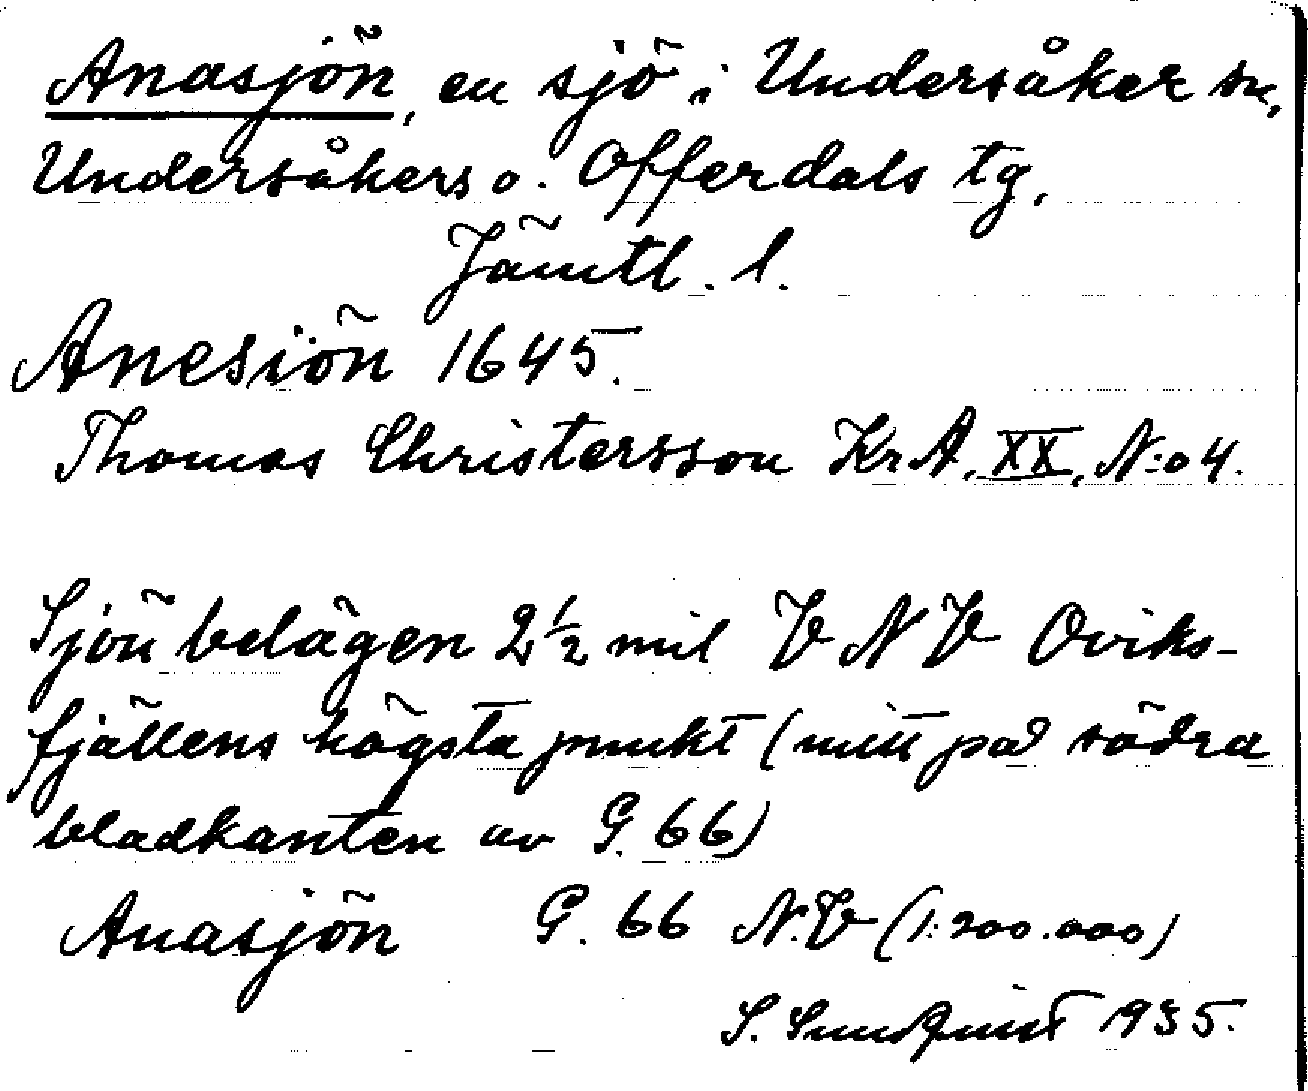 Anasjön, en sjö i Undersåker sn,
Undersåkers o. Offerdals tg,
Jämtl. l.
Anesiön 1645.
Thomas Christersson KrA, XX, N:o 4.
Sjön belägen 2½ mil V N V Oviks-
fjällens högsta punkt (mitt på södra
bladkanten av G. 66)
Anasjön G. 66 N.V (1:200.000)
S. Sundquist 1935.